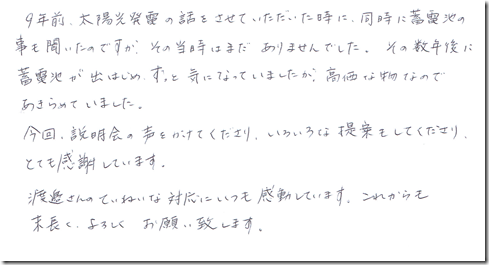 9年前、太陽光発電の話をさせていただいた時に、同時に蓄電池の
事も聞いたのですが、その当時はまだ ありませんでした。その数年後に
蓄電池が出はじめ、ずっと気になっていましたが、高価な物なので
あきらめていました。
今回、説明会の声をかけてくださり、いろいろな提案もしてくださり、
とても感謝しています。
渡邉さんのていねいな対応にいつも感動しています。これからも
末長く、よろしく お願い致します。